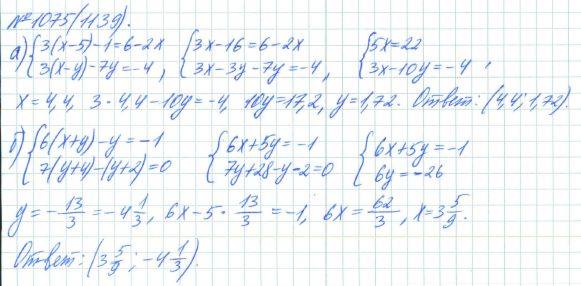 №1075(1139).
а) {3(x-5)-1=6-2x {3x-16=6-2x {5x=22
3(x-y)-7y=-4, 3x-3y-7y=-4, 3x-10y=-4,
x=4,4, 3·4,4-10y=-4, 10y=17,2, y=1,72. Ответ: (4,4; 1,72).
б) {6(x+y)-y=-1 {6x+5y=-1 {6x+5y=-1
7(y+4)-(y+2)=0 7y+28-y-2=0 6y=-26
y=-13/3=-4 1/3, 6x-5·13/3=-1, 6x=62/3, x=3 5/9.
Ответ: (3 5/9; -4 1/3).